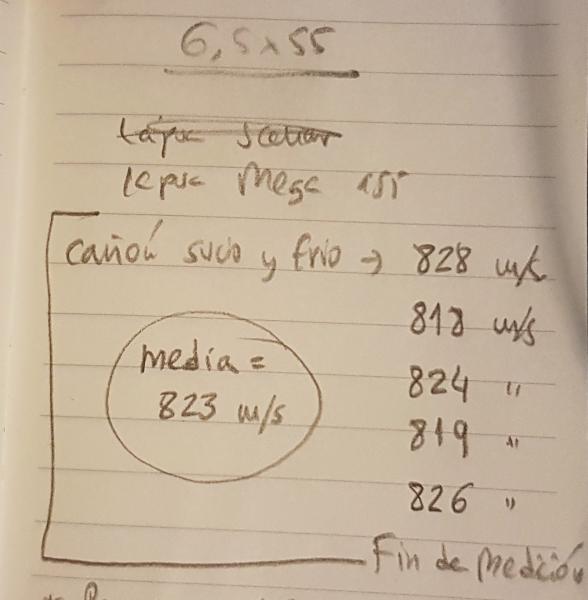 6,5x55
lapua Mega 155
cañón sucio y frio → 828 m/s
818 m/s
media =
824 "
823 m/s
819 "
826 "
Fin de medición